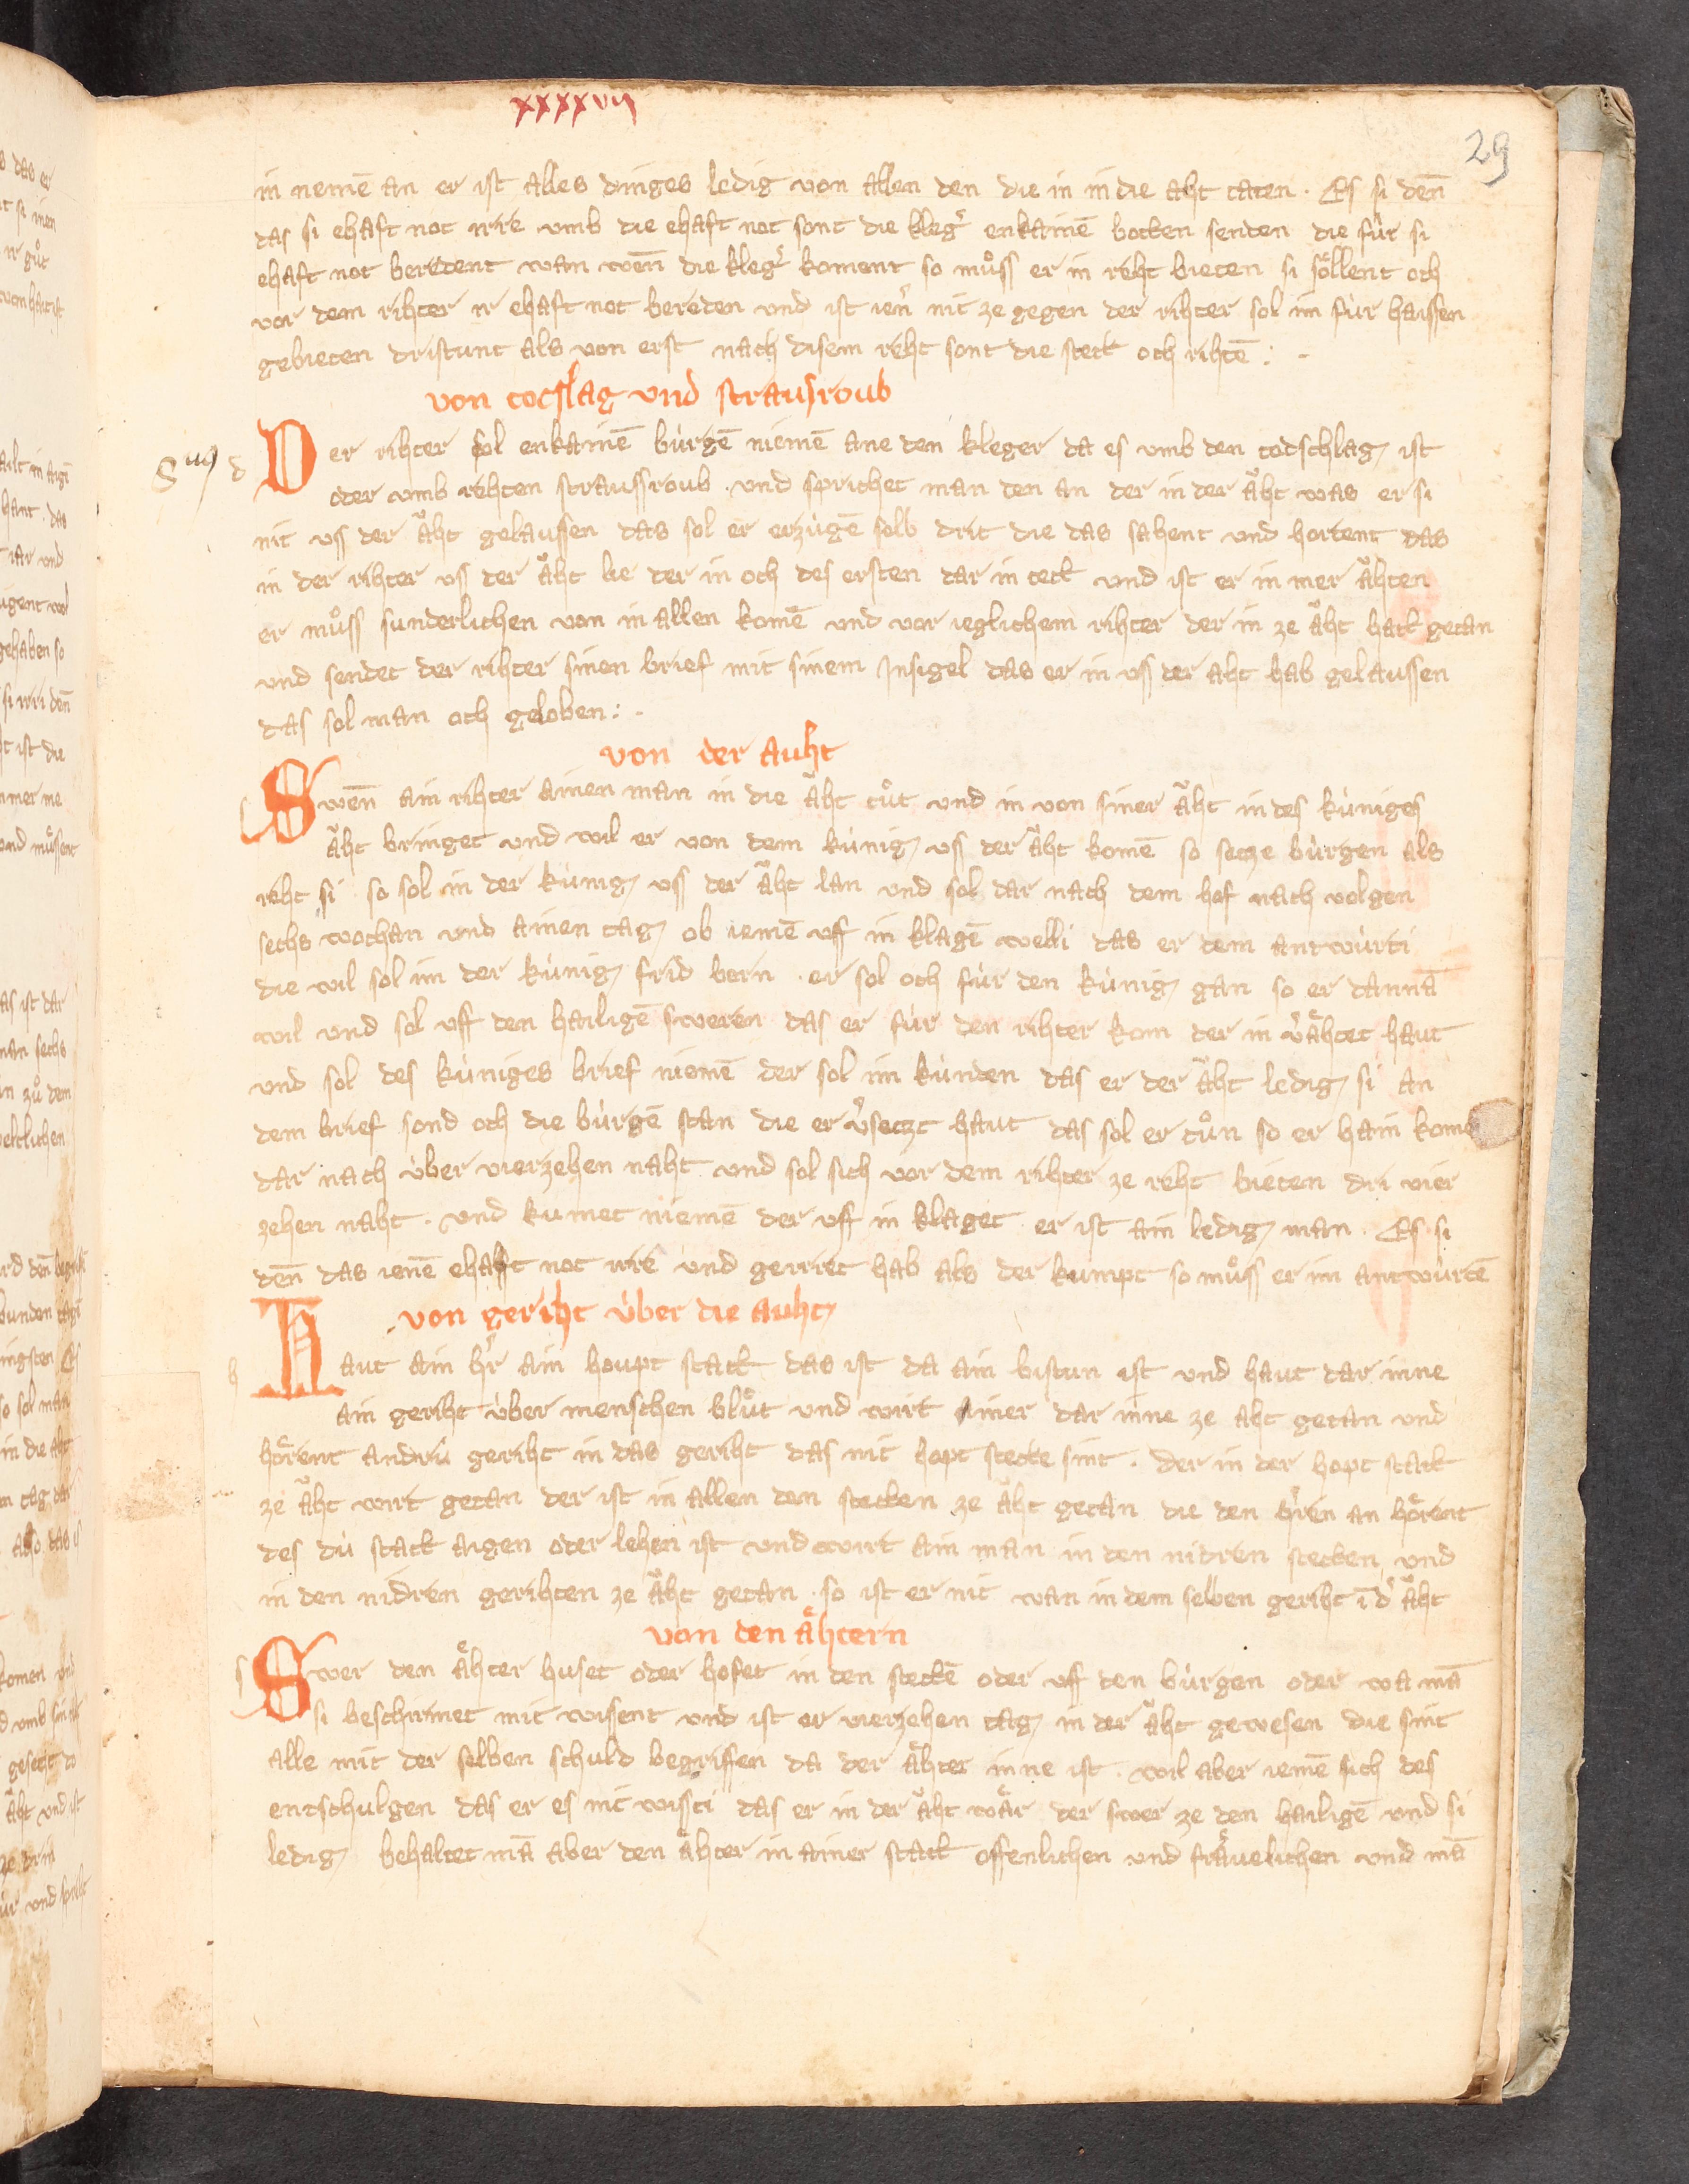 xxxxvij
29
in nemē an er ist alles dinges ledig von allen den die in in die aht taten . Es si deñ
das si ehaft not irre vmb die ehaft not sont die kleg̾ enkainē botten senden die fúr si
ehaft not beredent wan weñ die kleg̾ koment so mů̊ss er in reht bieten si söllent och
vor dem rihter ir ehaft not bereden vnd ist ien̾ nit ze gegen der rihter sol im fúr haissen
gebieten dristunt als von erst nach disem reht sont die stett och rihtē : -
von totslag vnd strausroub
D er rihter sol enkainē búrgē niemē ane den kleger da es vmb den todschlag ist
oder vmb rehten straussroub . vnd sprichet man den an der in der åht was er si
nit vss der åht gelaussen das sol er erzúgē selb drit die das sahent vnd hortent das
in der rihter vss der åht lie der in och des ersten dar in tett vnd ist er in mer åhten
er můss sunderlichen von in allen komē vnd vor ieglichem rihter der in ze åht hatt getan
vnd sendet der rihter sinen brief mit sinem Insigel das er in vss der aht hab gelaussen
das sol man och geloben : .
von der auht
S weñ ain rihter ainen man in die åht tůt vnd in von siner åht in des kúniges
åht bringet vnd wil er von dem kúnig vss der åht komē so setze búrgen als
reht si so sol in der kúnig vss der åht lan vnd sol dar nach dem hof nach volgen
sechs wochan vnd ainen tag ob iemē vff in klagē welli das er dem antwúrti
die wil sol im der kúnig frid bern . er sol och fúr den kúnig gan so er dannā
wil vnd sol vff den hailigē sweren das er fúr den rihter kom der in v̾åhtet haut
vnd sol des kúniges brief niemē der sol im kúnden das er der åht ledig si an
dem brief sond och die búrgē stan die er v̾setzt haut das sol er tůn so er hain kome
dar nach úber vierzehen naht vnd sol sich vor dem rihter ze reht bieten dri vier
zehen naht . vnd kumet niemē der vff in klaget er ist ain ledig man . Es si
deñ das ienē ehafft not irre vnd geirret hab als der kumpt so můss er im antwúrtē
von geriht úber die auht
H aut ain h̾r ain houpt statt das ist da ain bistun ist vnd haut dar inne
ain geriht úber menschen blůt vnd wirt ainer dar inne ze aht getan vnd
hörent andrú geriht in das geriht das nit hopt stette sint . der in der hopt statt
ze åht wirt getan der ist in allen den stetten ze åht getan die den h̾ren an hörent
des dú statt aigen oder lehen ist vnd wirt ain man in den nidren stetten vnd
in den nidren gerihten ze åht getan . so ist er nit wan in dem selben geriht ī d̾ åht
von den ähtern
S wer den ähter huset oder hofet in den stettē oder vff den búrgen oder wa mā
si beschirmet mit wissent vnd ist er vierzehen tag in der åht gewesen die sint
alle mit der selben schuld begriffen da der ähter inne ist . wil aber iemē sich des
entschulgen das er es nit wissti das er in der åht wär der swer ze den hailigē vnd si
ledig behaltet mā aber den ähter in ainer statt offenlichen vnd fräuelichen vnd mā